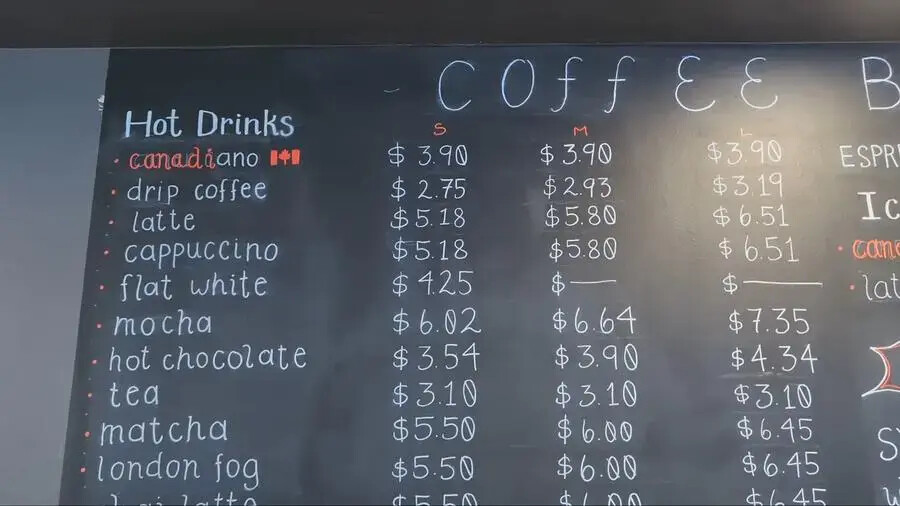 COffEE B
Hot Drinks
S M L
canadiano $3.90 $3.90 $3.90
drip coffee $2.75 $2.93 $3.19
latte $5.18 $5.80 $6.51
cappuccino $5.18 $5.80 $6.51
flat white $4.25 $— $—
mocha $6.02 $6.64 $7.35
hot chocolate $3.54 $3.90 $4.34
tea $3.10 $3.10 $3.10
matcha $5.50 $6.00 $6.45
london fog $5.50 $6.00 $6.45
latte $5.50 $6.00 $6.45
ESPR
Ic
cana
lat